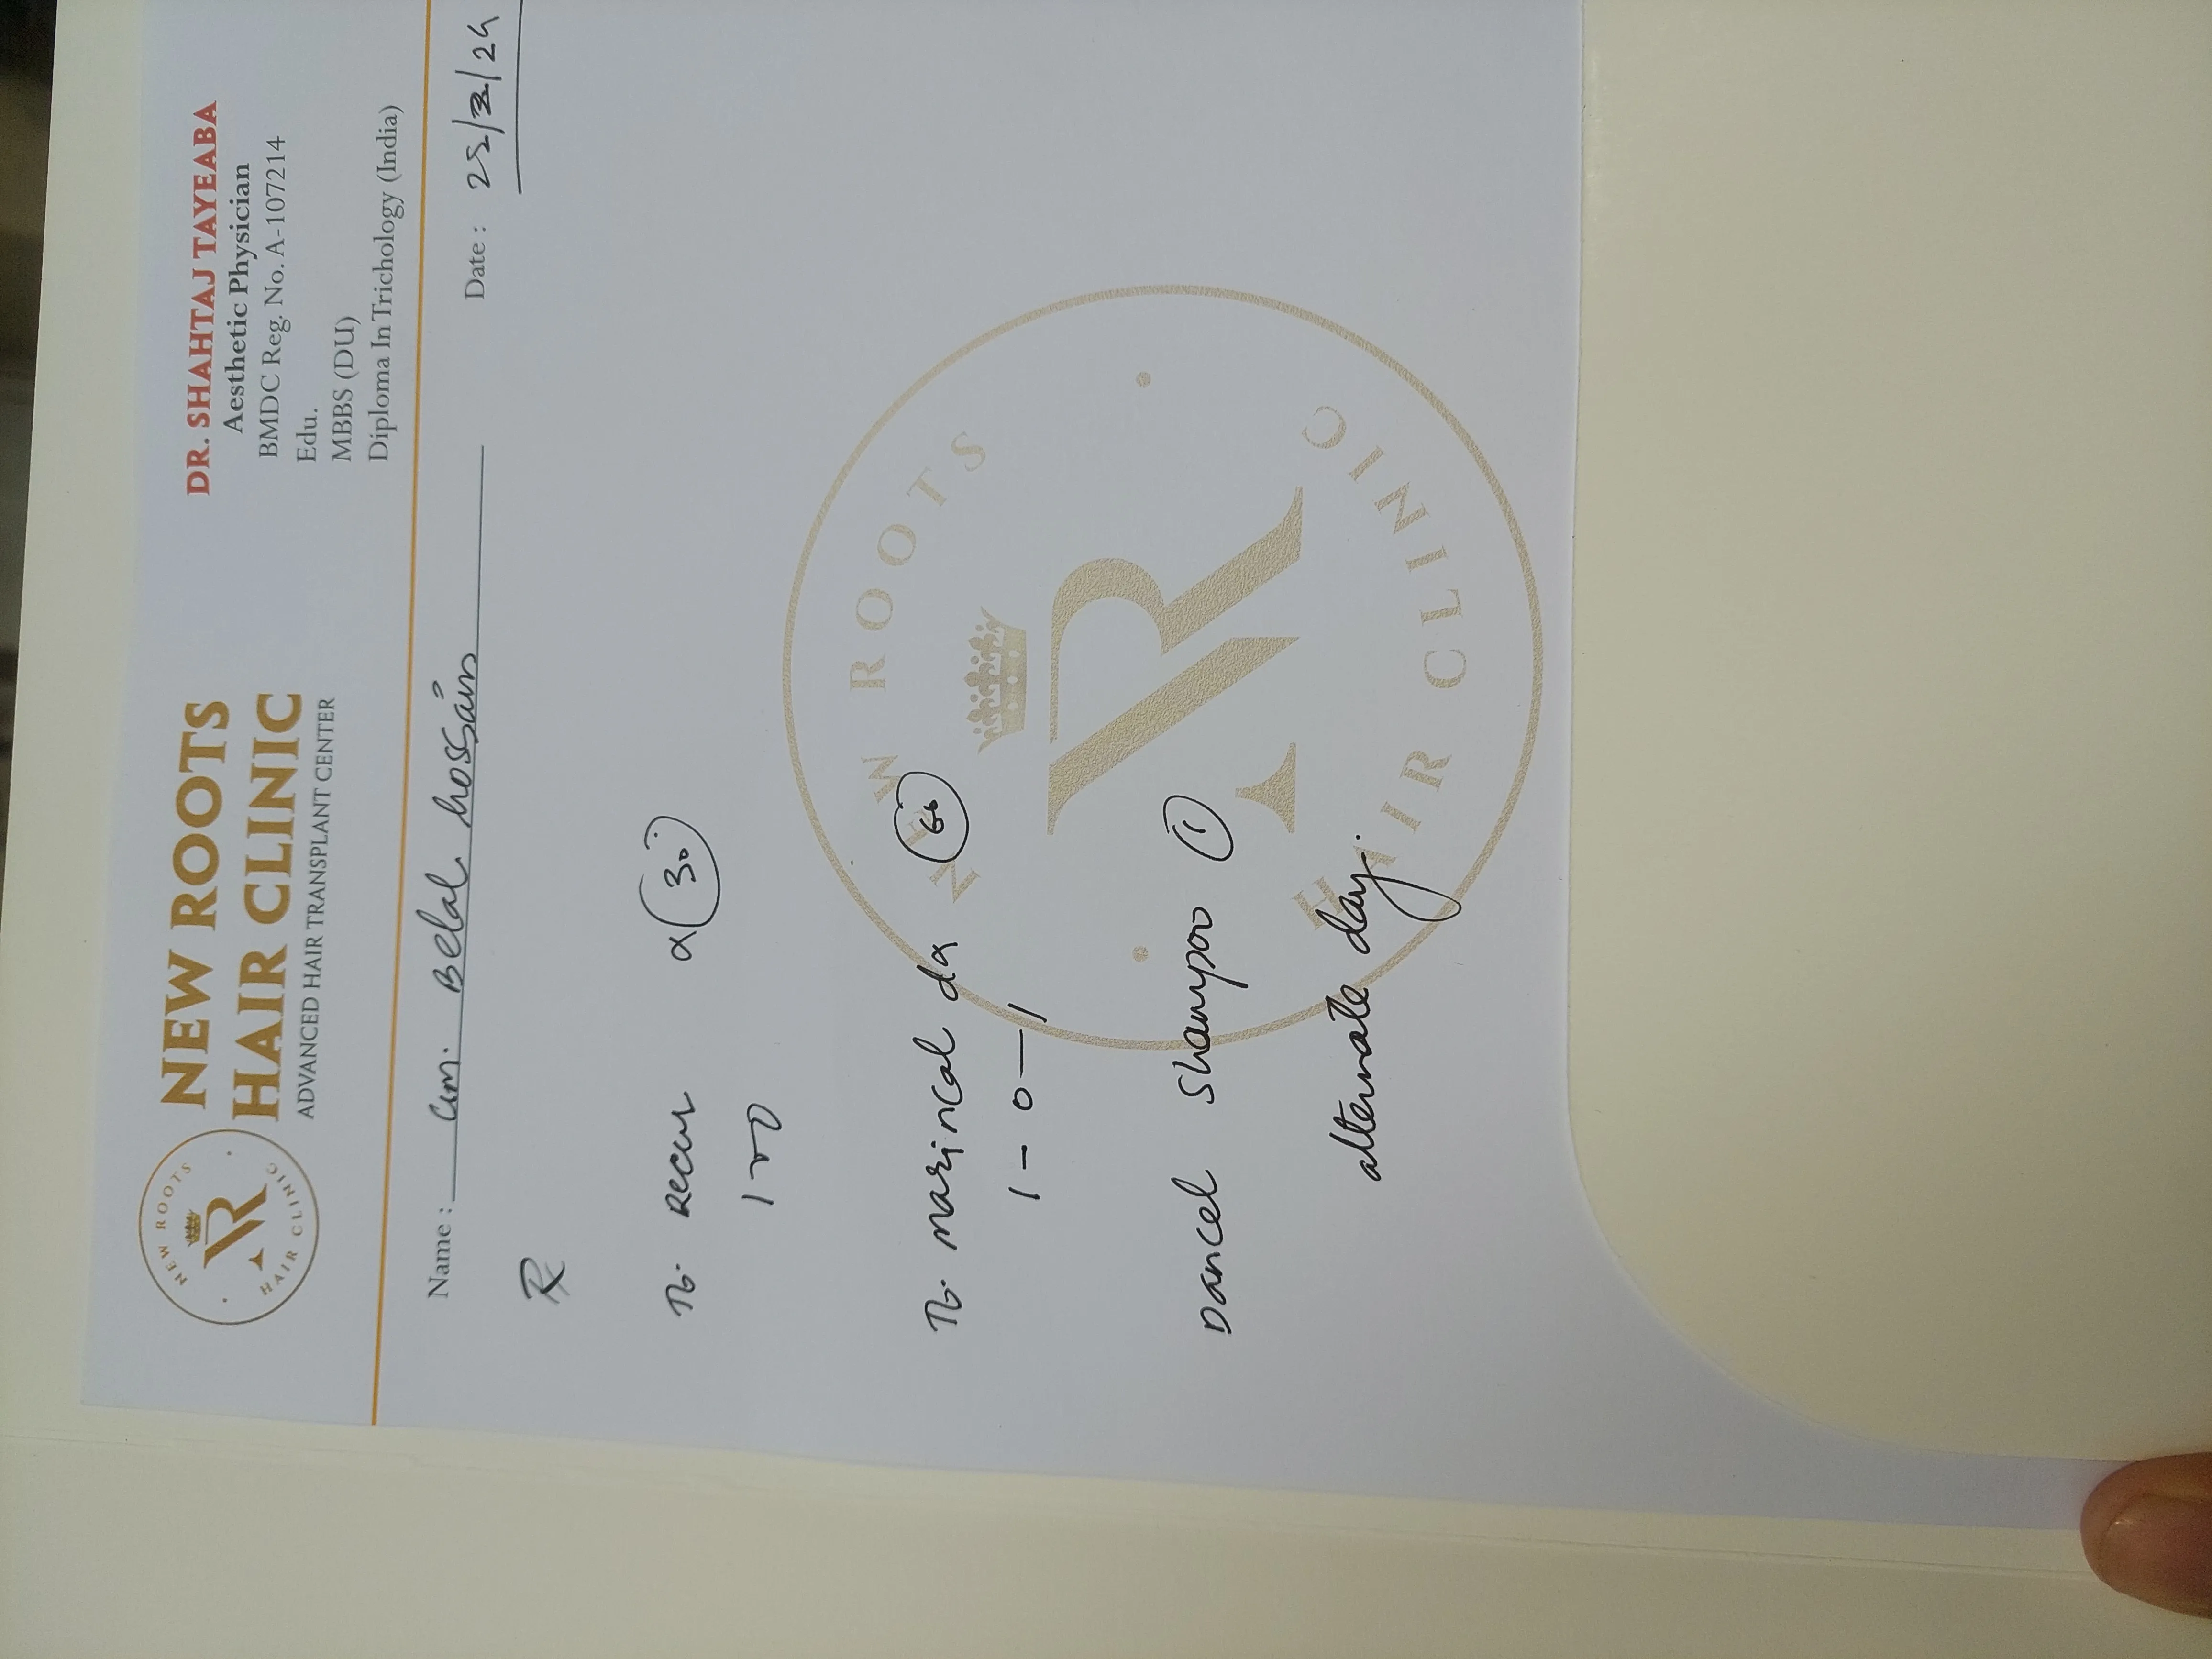 NEW ROOTS
HAIR CLINIC
NEW ROOTS
HAIR CLINIC
ADVANCED HAIR TRANSPLANT CENTER
DR. SHAHTAJ TAYEABA
Aesthetic Physician
BMDC Reg. No. A-107214
Edu.
MBBS (DU)
Diploma In Trichology (India)
Name : Belal hossain
Date : 25/2/24
R
Tb. Recur 30
Tb. marincal dx 60
1 - 0 - 1
Dancel Shampoo 1
alternate day.
NEW ROOTS
NR
HAIR CLINIC